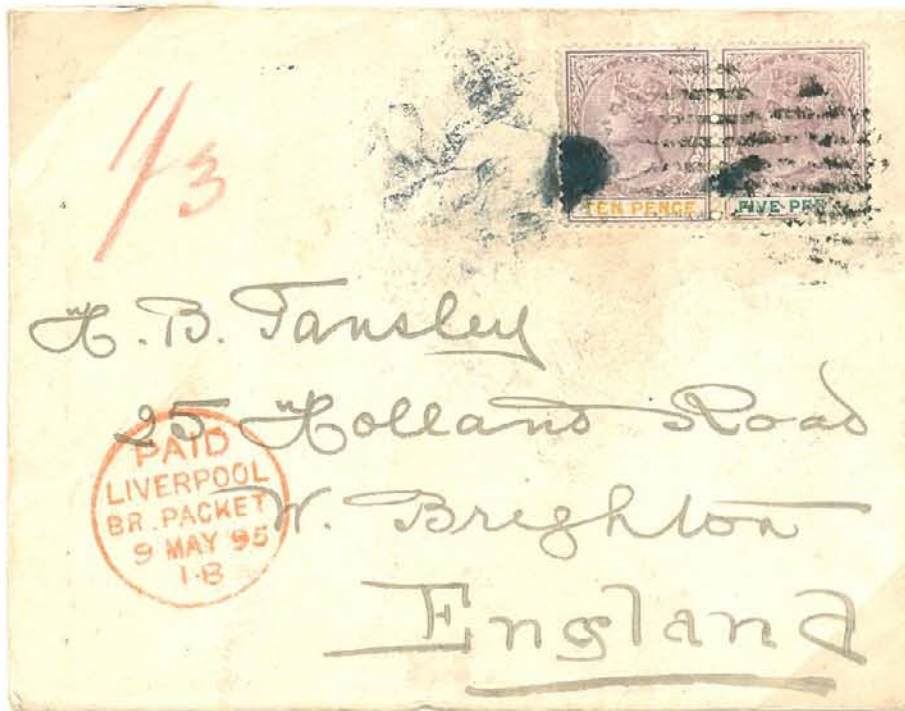 1/3
TEN PENCE
FIVE PE
H. B. Tansley
25 Holland Road
W. Brighton
England
PAID
LIVERPOOL
BR. PACKET
9 MAY 95
1·B